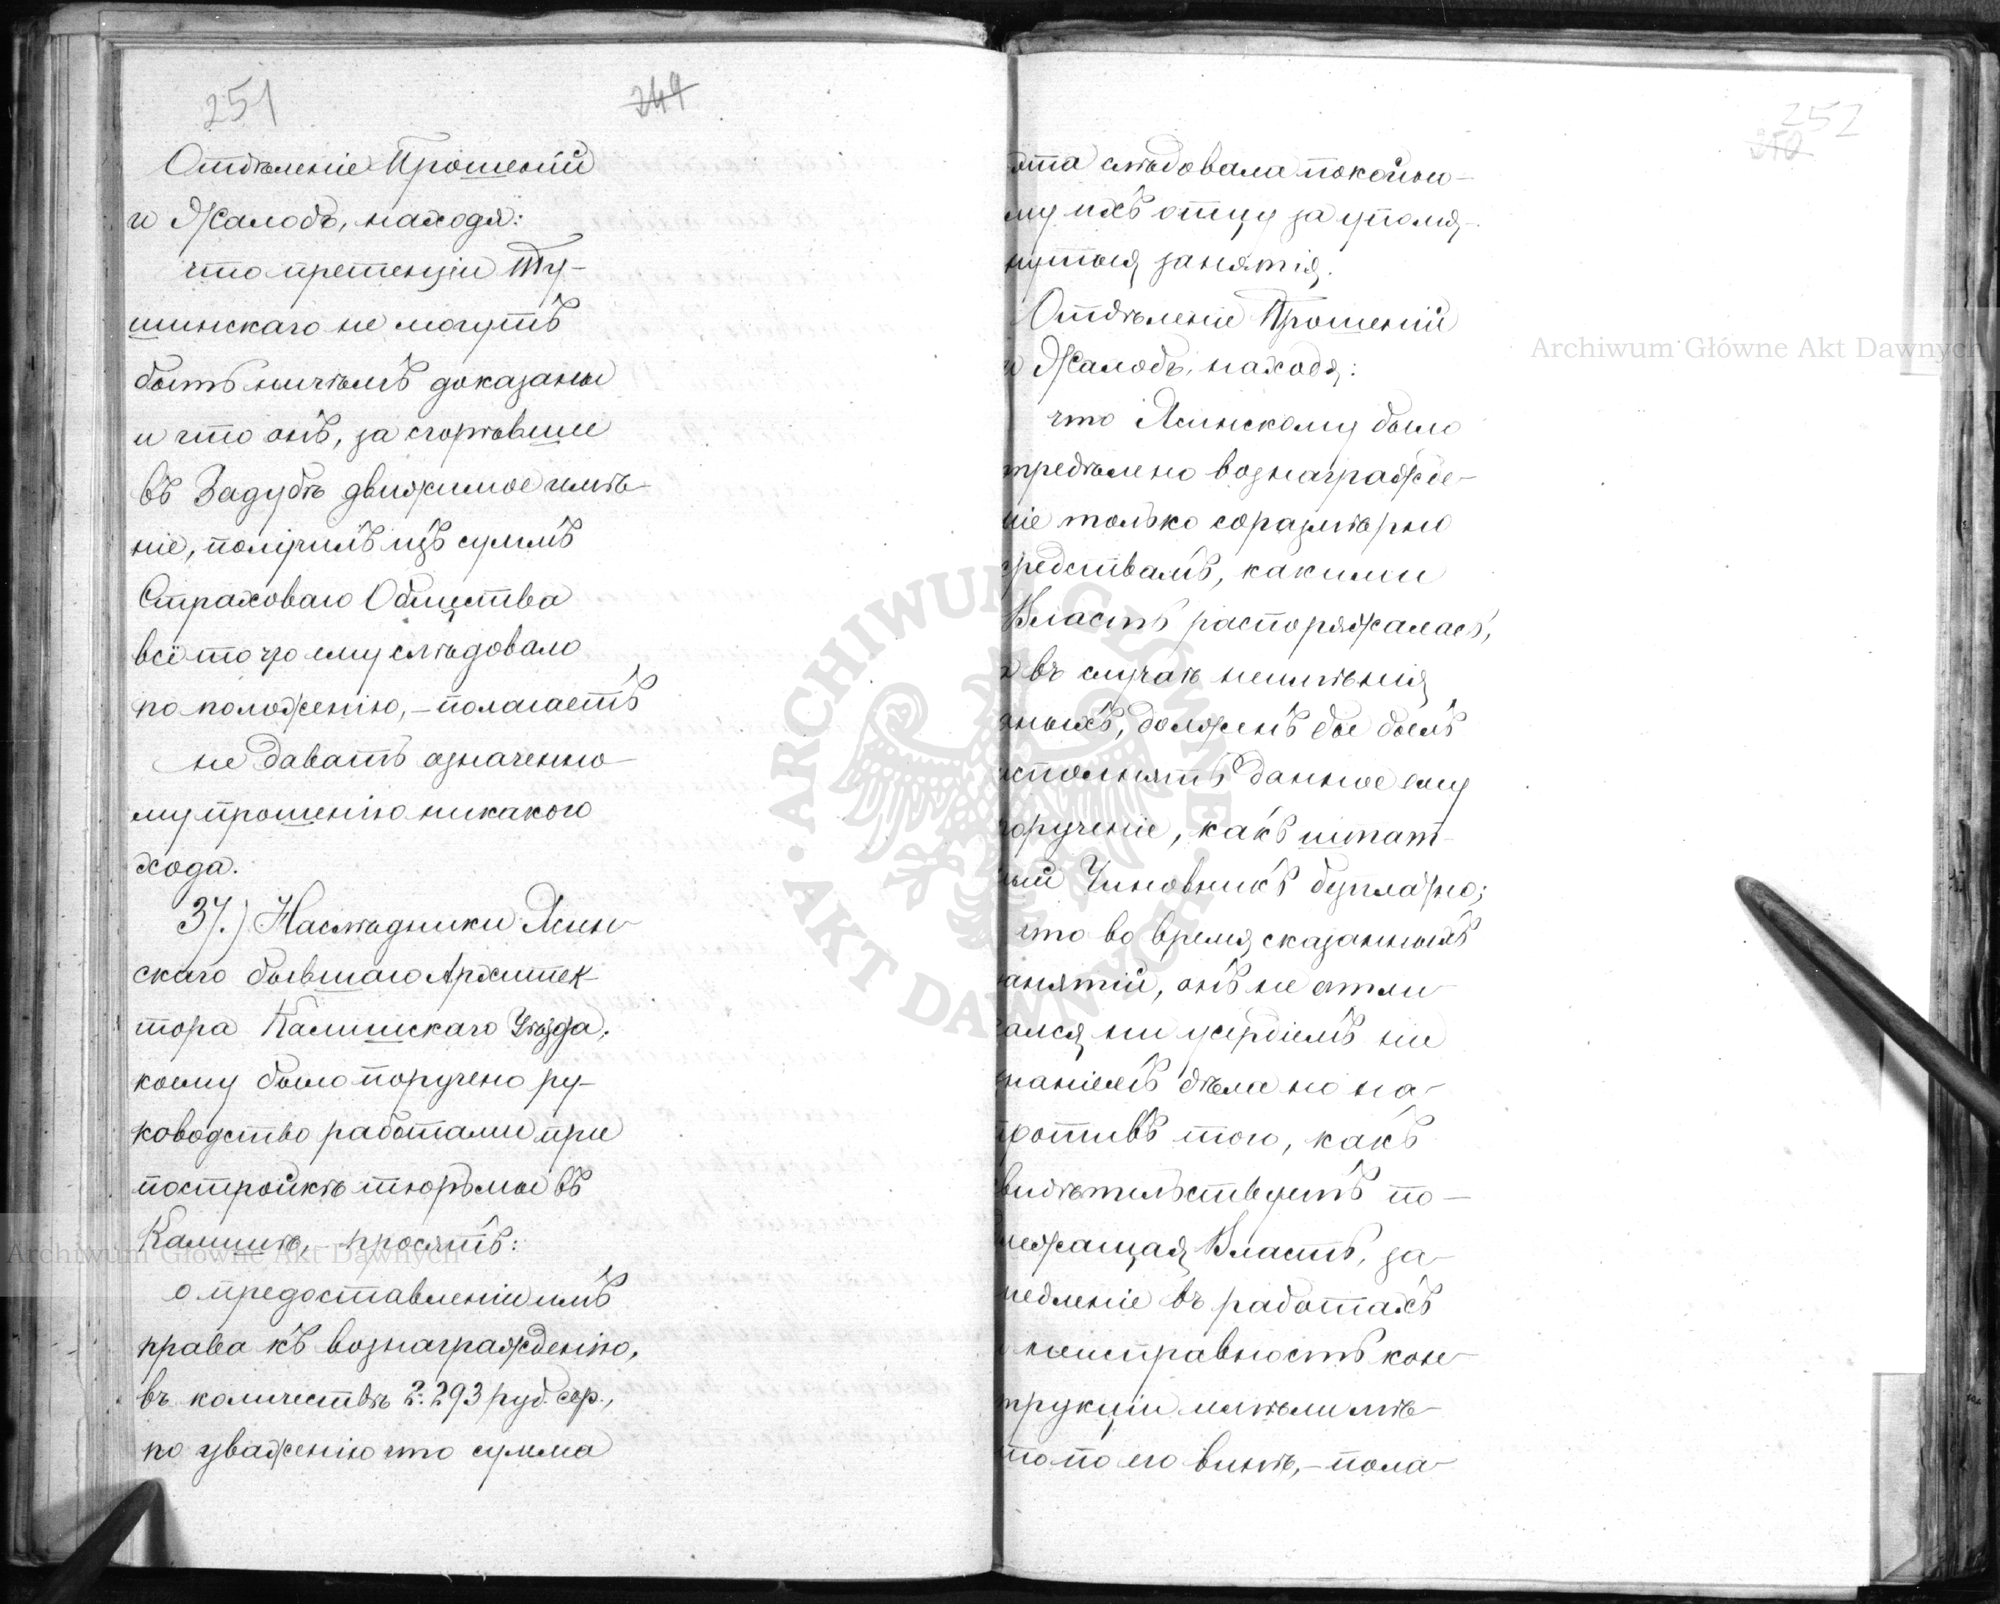 251
249
Отдѣленіе Прошеній
и Жалобъ, находя:
что претензіи Ту-
шинскаго не могутъ
быть ничѣмъ доказаны
и что онъ, за сгорѣвшее
въ Задубѣ движимое имѣ-
ніе, получилъ изъ суммъ
Страховаго Общества
всё то что ему слѣдовало
по положенію, – полагаетъ
не давать означенно-
му прошенію никакого
хода.
37.) Наслѣдники Ясин-
скаго бывшаго Архитек-
тора Калишскаго Уѣзда,
коему было поручено ру-
ководство работами при
постройкѣ тюрьмы въ
Калишѣ, – просятъ:
о предоставленіи имъ
права къ вознагражденію,
въ количествѣ 2.293 руб. сер.,
по уваженію что сумма
252
250
эта слѣдовала покойно-
му ихъ отцу за упомя-
нутыя занятія.
Отдѣленіе Прошеній
и Жалобъ, находя:
что Ясинскому было
предѣлено вознагражде-
ніе только соразмѣрно
средствамъ, какими
Власть распоряжалась,
а въ случаѣ неимѣнія
оныхъ, долженъ бы былъ
исполнять данное ему
порученіе, какъ штат-
ный Чиновникъ безплатно;
что во время сказанныхъ
занятій, онъ не отли-
чался ни усердіемъ ни
знаніемъ дѣла но на-
противъ того, какъ
свидѣтельствуетъ по-
длежащая Власть, за-
медленіе въ работахъ
и неисправность кон-
струкціи имѣли мѣ-
сто по его винѣ, – пола-
Archiwum Główne Akt Dawnych
Archiwum Główne Akt Dawnych
ARCHIWUM GŁÓWNE AKT DAWNYCH